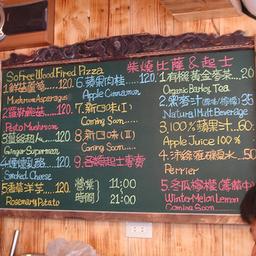 So Free Wood Fired Pizza
柴燒比薩&起士
1.鮮菇蘆筍....120.
Mushroom Asparagus
120.
Pesto Mushroom
120.
Ginger Superman
4.煙燻乳酪..120.
Smoked Cheese
5.香草洋芋..120.
Rosemary Potato
6.蘋果肉桂...120.
Apple Cinnamon
7.新口味(I)
Coming Soon.....
8.新口味(II)
Coming Soon.....
營業 11:00
時間 21:00
1.有機黃金麥茶...20
Organic Barley Tea
35
Natural Malt Beverage
3.100%蘋果汁...60.
Apple Juice 100%
50
Perrier
5.冬瓜檸檬(籌備中)
Winter Melon Lemon
Coming Soon